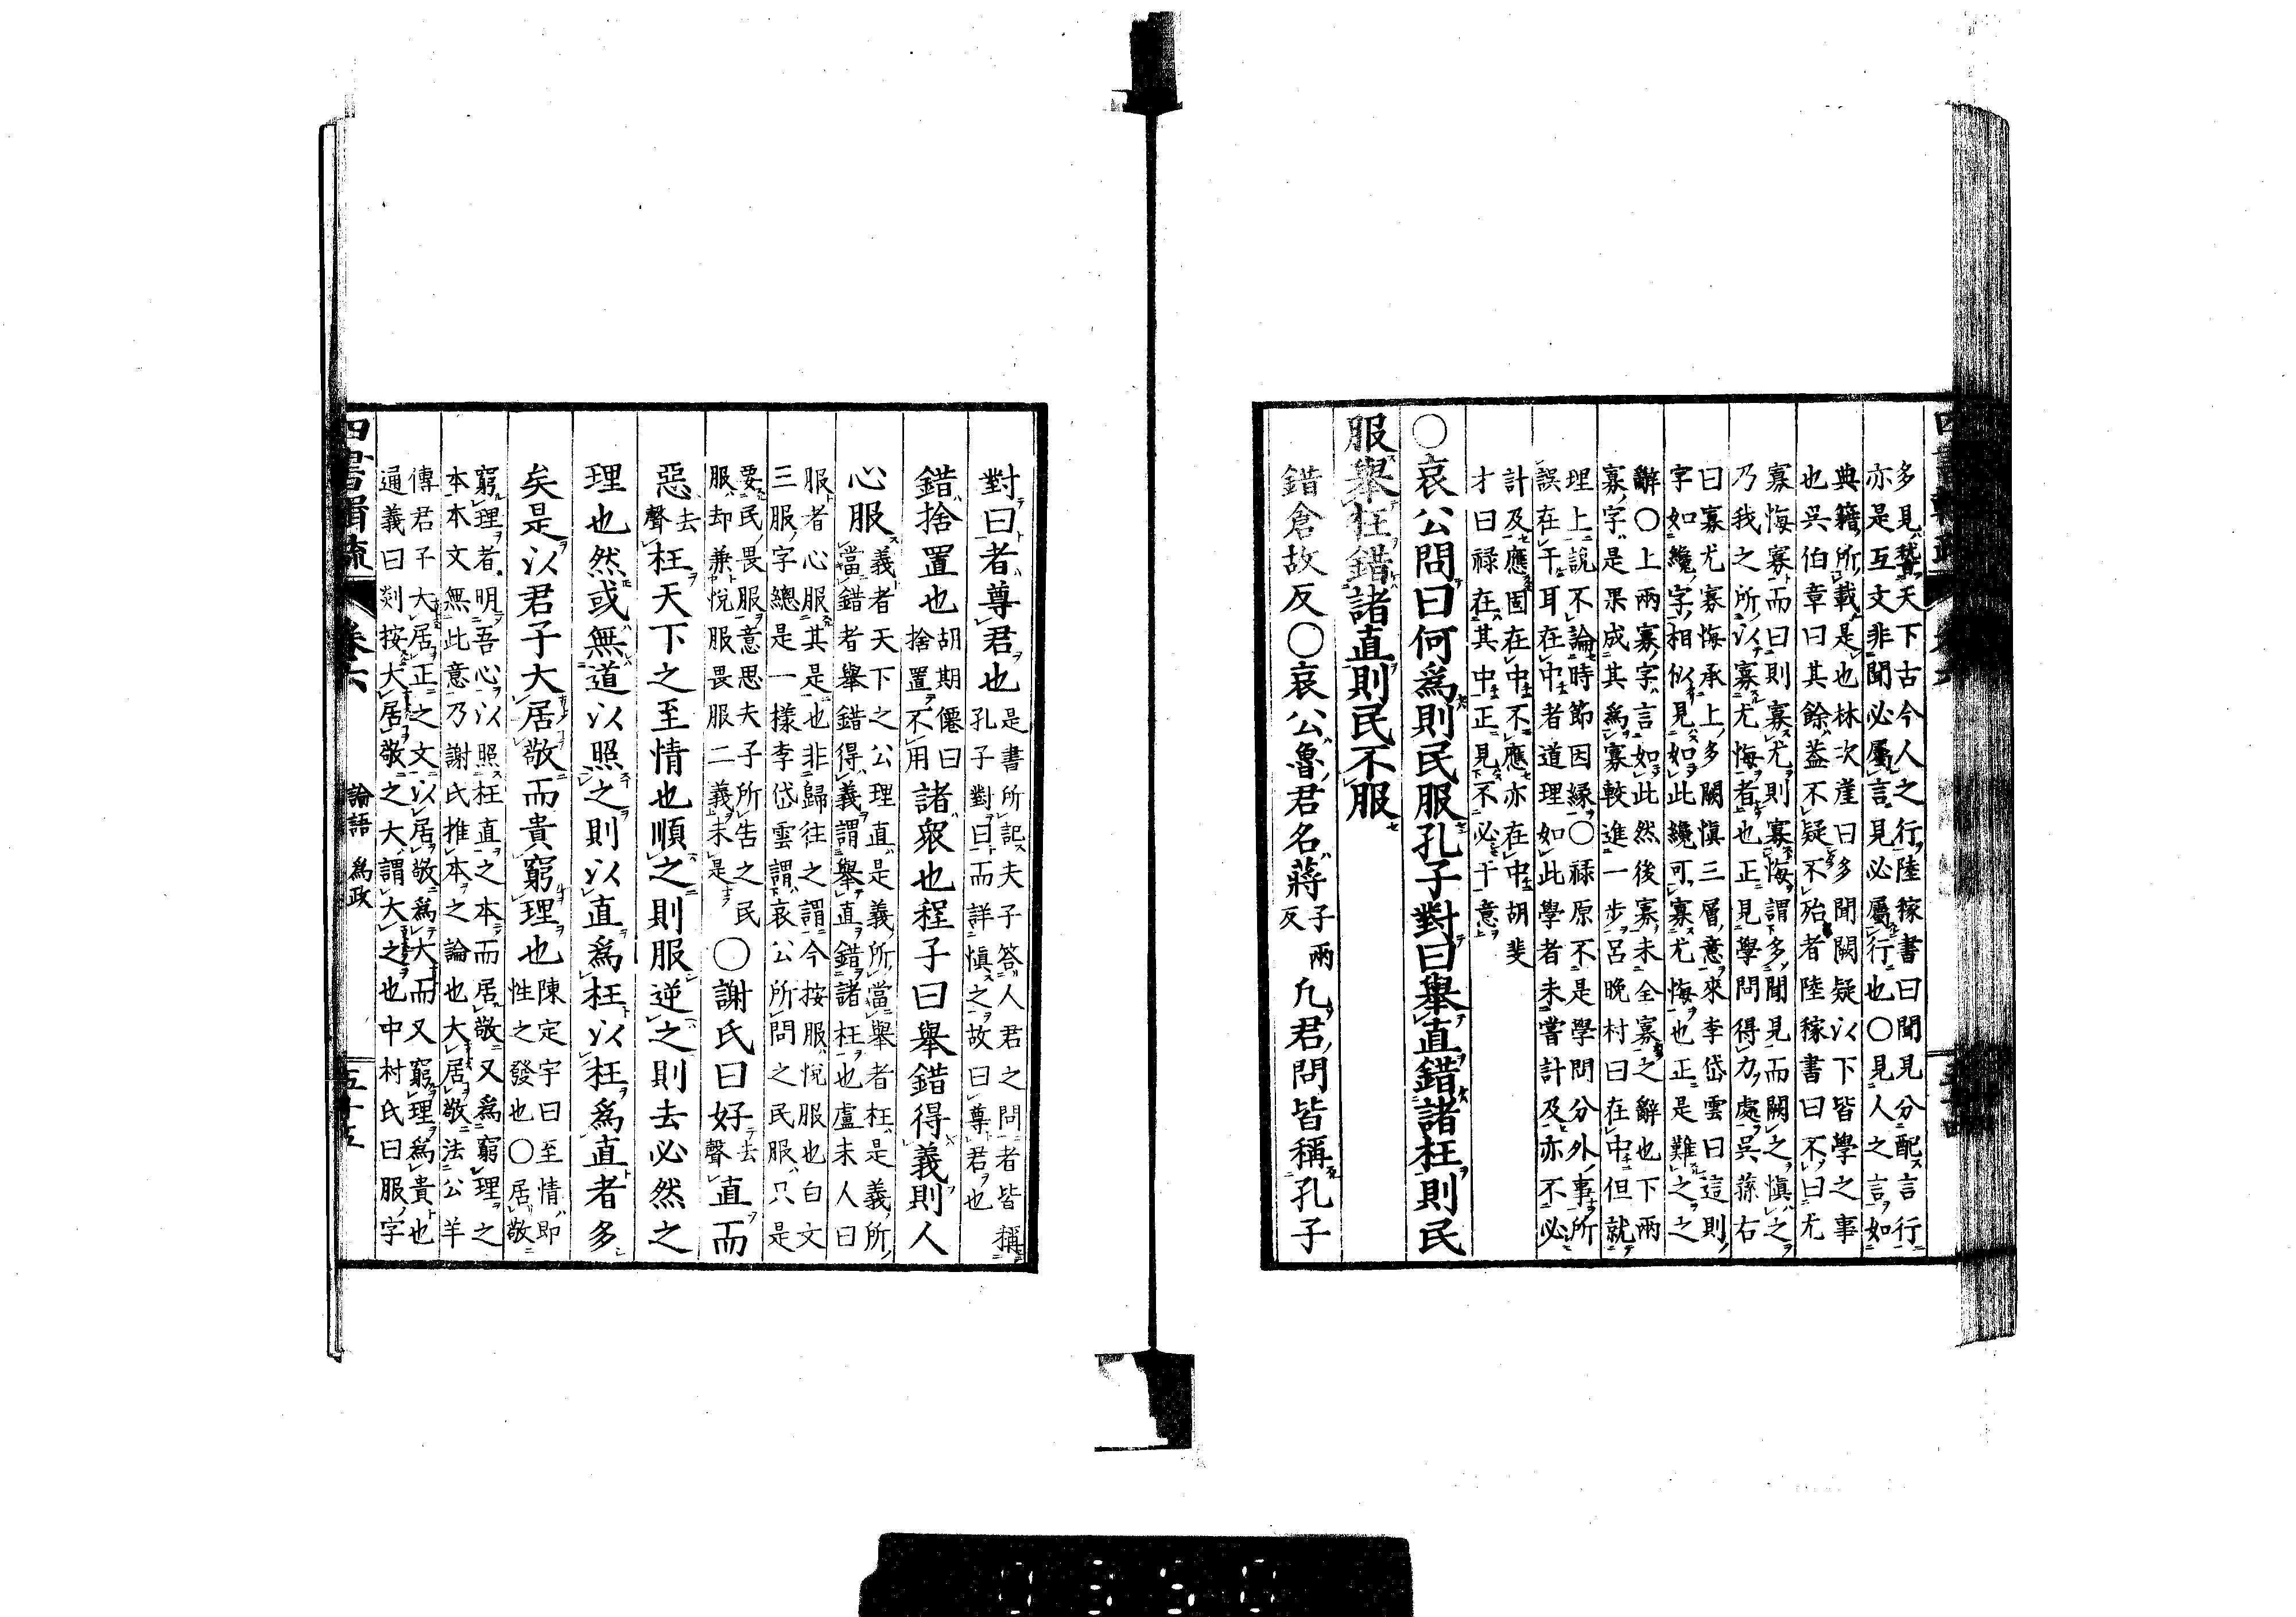 多見、贅天下古今人之行、陸稼書曰聞見分配言行
亦是互文非聞必屬言見必屬行也〇見人之言如
典籍所載是也林次崖曰多聞闕疑以下皆學之事
也呉伯章曰其餘蓋不疑不殆者陸稼書曰不曰尤
寡悔寡而曰則寡尤則寡悔謂多聞見而闕之慎之
乃我之所以寡尤悔者也正見學問得力處呉蓀右
曰寡尤寡悔承上多闕慎三層意來李岱雲曰這則
字如纔字相似見如此纔可寡尤悔也正是難之之
辭〇上兩寡字言如此然後寡未全寡之辭也下兩
寡字是果成其爲寡較進一步呂晩村曰在中但就
理上說不論時節因縁〇祿原不是學問分外事所
誤在干耳在中者道理如此學者未嘗計及亦不必
計及應固在中不應亦在中胡斐
才曰祿在其中正見不必干意
〇哀公問曰何爲則民服孔子對曰舉直錯諸枉則民
服舉枉錯諸直則民不服
錯倉故反〇哀公魯君名蔣子兩反凡君問皆稱孔子
對曰者尊君也是書所記夫子答人君之問者皆稱
孔子對曰而詳慎之故曰尊君也
錯捨置也胡期僊曰捨置不用諸衆也程子曰舉錯得義則人
心服義者天下之公理直是義所當舉者枉是義所
當錯者舉錯得義謂舉直錯諸枉也盧未人曰
服者心服其是也非歸往之謂今按服悅服也白文
三服字總是一樣李岱雲謂哀公所問之民服只是
要民畏服意思夫子所告之民
服却兼悅服畏服二義未是〇謝氏曰好去聲直而
惡去聲枉天下之至情也順之則服逆之則去必然之
理也然或無道以照之則以直爲枉以枉爲直者多
矣是以君子大居敬而貴窮理也陳定宇曰至情即
性之發也〇居敬
窮理者明吾心以照枉直之本而居敬又爲窮理之
本本文無此意乃謝氏推本之論也大居敬法公羊
傳君子大居正之文以居敬爲大而又窮理爲貴也
通義曰剡按大居敬之大謂大之也中村氏曰服字
四書輯疏 卷六 論語 爲政 五十五